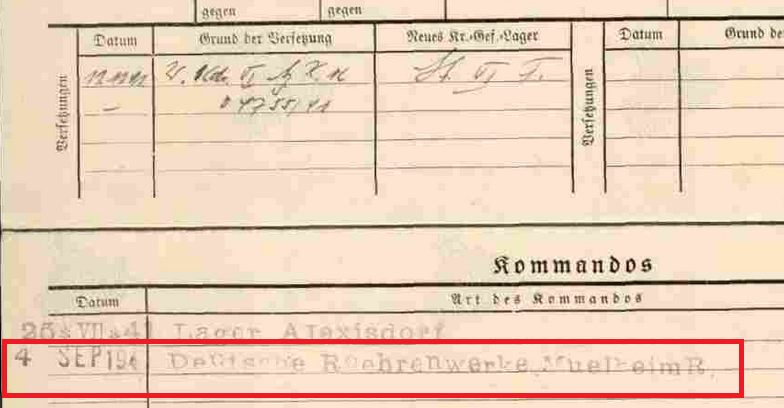 gegen gegen
Versetzungen Datum Grund der Versetzung Neues Kr.-Gef.-Lager Versetzungen Datum Grund de
04755/41
Kommandos
Datum Art des Kommandos
25. VII. 41 Lager Alexisdorf
4 SEP 194 Deutsche Roehrenwerke Muelheim R.